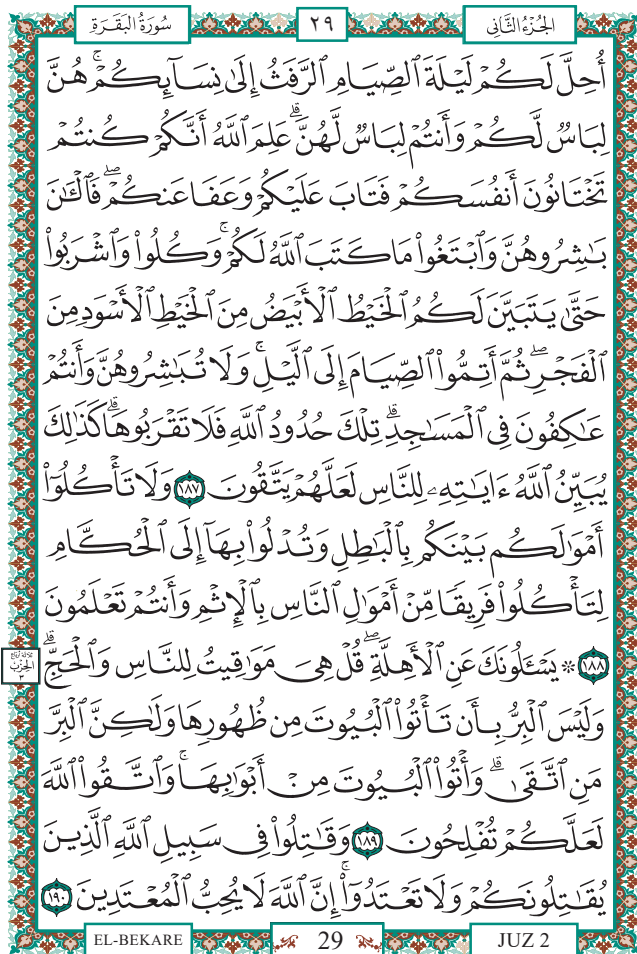 سُورَةُ البَقَـرَةِ ٢٩ الجُزْءُ الثَّانِي
أُحِلَّ لَكُمْ لَيْلَةَ ٱلصِّيَامِ ٱلرَّفَثُ إِلَىٰ نِسَآئِكُمْ ۚ هُنَّ
لِبَاسٌ لَّكُمْ وَأَنتُمْ لِبَاسٌ لَّهُنَّ ۗ عَلِمَ ٱللَّهُ أَنَّكُمْ كُنتُمْ
تَخْتَانُونَ أَنفُسَكُمْ فَتَابَ عَلَيْكُمْ وَعَفَا عَنكُمْ ۖ فَٱلْـَٰٔنَ
بَـٰشِرُوهُنَّ وَٱبْتَغُوا۟ مَا كَتَبَ ٱللَّهُ لَكُمْ ۚ وَكُلُوا۟ وَٱشْرَبُوا۟
حَتَّىٰ يَتَبَيَّنَ لَكُمُ ٱلْخَيْطُ ٱلْأَبْيَضُ مِنَ ٱلْخَيْطِ ٱلْأَسْوَدِ مِنَ
ٱلْفَجْرِ ۖ ثُمَّ أَتِمُّوا۟ ٱلصِّيَامَ إِلَى ٱلَّيْلِ ۚ وَلَا تُبَـٰشِرُوهُنَّ وَأَنتُمْ
عَـٰكِفُونَ فِى ٱلْمَسَـٰجِدِ ۗ تِلْكَ حُدُودُ ٱللَّهِ فَلَا تَقْرَبُوهَا ۗ كَذَٰلِكَ
يُبَيِّنُ ٱللَّهُ ءَايَـٰتِهِۦ لِلنَّاسِ لَعَلَّهُمْ يَتَّقُونَ ١٨٧ وَلَا تَأْكُلُوٓا۟
أَمْوَٰلَكُم بَيْنَكُم بِٱلْبَـٰطِلِ وَتُدْلُوا۟ بِهَآ إِلَى ٱلْحُكَّامِ
لِتَأْكُلُوا۟ فَرِيقًا مِّنْ أَمْوَٰلِ ٱلنَّاسِ بِٱلْإِثْمِ وَأَنتُمْ تَعْلَمُونَ
١٨٨ ۞ يَسْـَٔلُونَكَ عَنِ ٱلْأَهِلَّةِ ۖ قُلْ هِىَ مَوَٰقِيتُ لِلنَّاسِ وَٱلْحَجِّ ۗ
وَلَيْسَ ٱلْبِرُّ بِأَن تَأْتُوا۟ ٱلْبُيُوتَ مِن ظُهُورِهَا وَلَـٰكِنَّ ٱلْبِرَّ
مَنِ ٱتَّقَىٰ ۗ وَأْتُوا۟ ٱلْبُيُوتَ مِنْ أَبْوَٰبِهَا ۚ وَٱتَّقُوا۟ ٱللَّهَ
لَعَلَّكُمْ تُفْلِحُونَ ١٨٩ وَقَـٰتِلُوا۟ فِى سَبِيلِ ٱللَّهِ ٱلَّذِينَ
يُقَـٰتِلُونَكُمْ وَلَا تَعْتَدُوٓا۟ ۚ إِنَّ ٱللَّهَ لَا يُحِبُّ ٱلْمُعْتَدِينَ ١٩٠
الحِزْبِ
٣
EL-BEKARE 29 JUZ 2